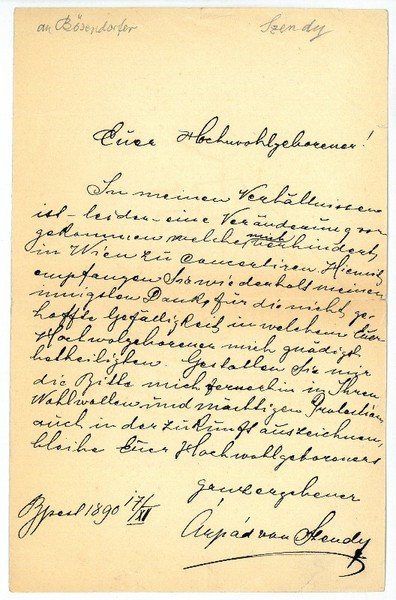 an Bösendorfer
Szendy
Euer Hochwohlgeborener!
In meinen Verhältnissen
ist - leider - eine Veränderung vor
gekommen welche mich verhindert,
in Wien zu concertiren. Hiemit
empfangen Sie wiederholt meinen
innigsten Dank für die nicht ge
hoffte Gefälligkeit in welchem Euer
Hochwolgeborener mich gnädigst
betheiligten. Gestatten Sie mir
die Bitte mich fernerhin in Ihren
Wohlwollen und mächtigen Protection
auch in der zukunft auszeichnen,
bleibe Euer Hochwohlgeboroners
ganzergebener
Bpest 1890 17/XI
Árpád von Szendy